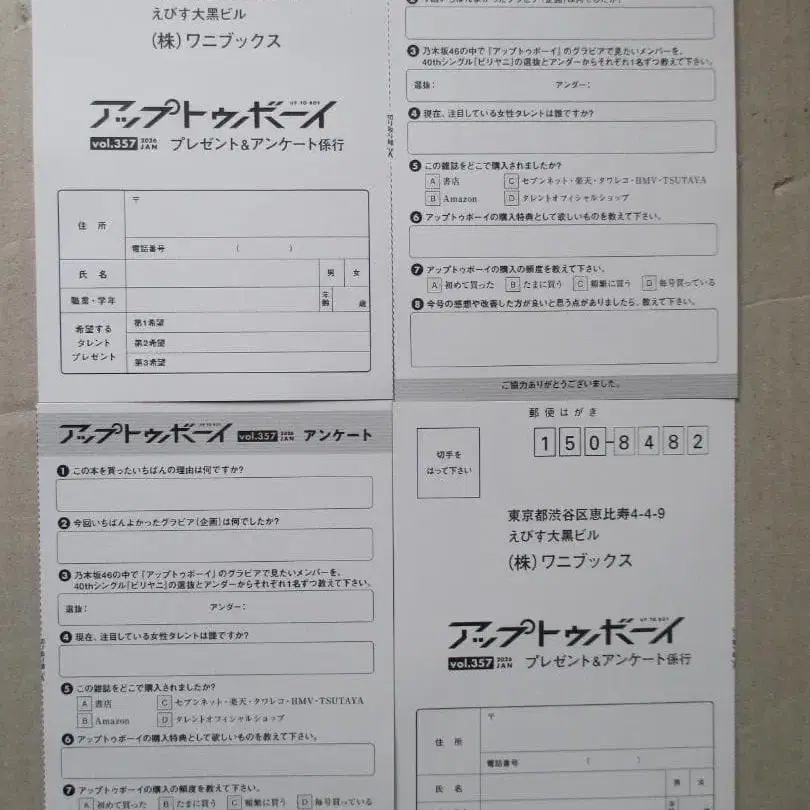 えびす大黒ビル
(株)ワニブックス
アップトゥボーイ
UP TO BOY
vol.357 2026 JAN プレゼント&アンケート係行
住所
〒
電話番号 ( )
氏名
男 女
職業・学年
年齢 歳
希望するタレントプレゼント
第1希望
第2希望
第3希望
❸ 乃木坂46の中で『アップトゥボーイ』のグラビアで見たいメンバーを、
40thシングル『ビリヤニ』の選抜とアンダーからそれぞれ1名ずつ教えて下さい。
選抜: アンダー:
❹ 現在、注目している女性タレントは誰ですか?
❺ この雑誌をどこで購入されましたか?
A 書店 C セブンネット・楽天・タワレコ・HMV・TSUTAYA
B Amazon D タレントオフィシャルショップ
❻ アップトゥボーイの購入特典として欲しいものを教えて下さい。
❼ アップトゥボーイの購入の頻度を教えて下さい。
A 初めて買った B たまに買う C 頻繁に買う D 毎号買っている
❽ 今号の感想や改善した方が良いと思う点がありましたら、教えて下さい。
ご協力ありがとうございました。
アップトゥボーイ UP TO BOY vol.357 2026 JAN アンケート
❶ この本を買ったいちばんの理由は何ですか?
❷ 今回いちばんよかったグラビア(企画)は何でしたか?
❸ 乃木坂46の中で『アップトゥボーイ』のグラビアで見たいメンバーを、
40thシングル『ビリヤニ』の選抜とアンダーからそれぞれ1名ずつ教えて下さい。
選抜: アンダー:
❹ 現在、注目している女性タレントは誰ですか?
❺ この雑誌をどこで購入されましたか?
A 書店 C セブンネット・楽天・タワレコ・HMV・TSUTAYA
B Amazon D タレントオフィシャルショップ
❻ アップトゥボーイの購入特典として欲しいものを教えて下さい。
❼ アップトゥボーイの購入の頻度を教えて下さい。
A 初めて買った B たまに買う C 頻繁に買う D 毎号買っている
郵便はがき
切手を
はって下さい
150-8482
東京都渋谷区恵比寿4-4-9
えびす大黒ビル
(株)ワニブックス
アップトゥボーイ
UP TO BOY
vol.357 2026 JAN プレゼント&アンケート係行
住所
〒
電話番号 ( )
氏名
男 女